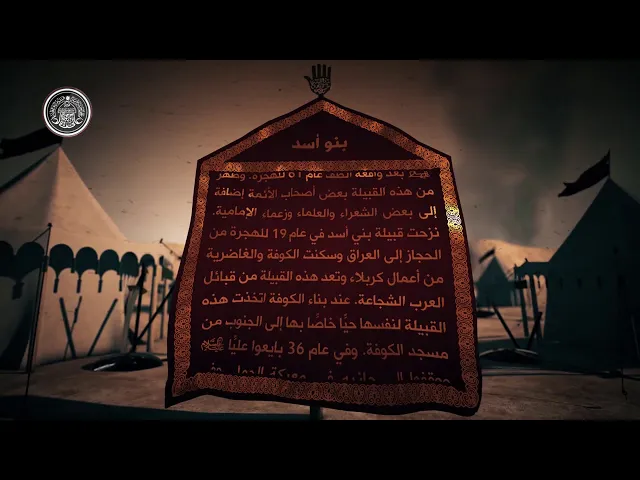 بنو أسد
بعد واقعة الطف عام 61 للهجرة. وظهر
من هذه القبيلة بعض أصحاب الأئمة إضافة
إلى بعض الشعراء والعلماء وزعماء الإمامية.
نزحت قبيلة بني أسد في عام 19 للهجرة من
الحجاز إلى العراق وسكنت الكوفة والغاضرية
من أعمال كربلاء وتعد هذه القبيلة من قبائل
العرب الشجاعة. عند بناء الكوفة اتخذت هذه
القبيلة لنفسها حيًّا خاصًّا بها إلى الجنوب من
مسجد الكوفة. وفي عام 36 بايعوا عليًّا
ووقفوا إلى جانبه في معركة الجمل وفي